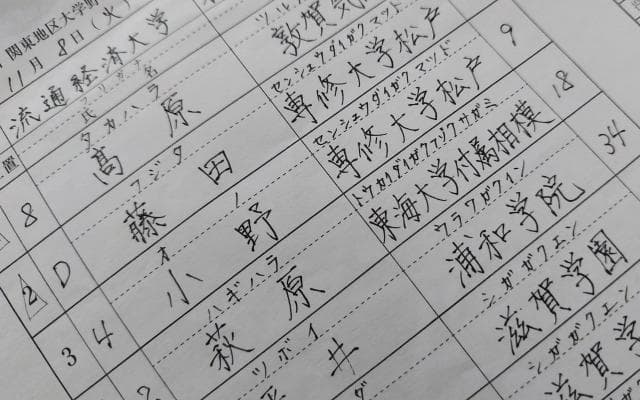 関東地区大学野
11月8日(火)
流通経済大学
フリガナ
氏 名
タカハラ
8 髙原 敦賀気
フジタ センシュウダイガクマツド
2 D 藤田 専修大学松戸
オノ センシュウダイガクマツド
3 4 小野 専修大学松戸 9
ハギハラ トウカイダイガクフゾクサガミ
萩原 東海大学付属相模 18
ツボイ ウラワガクイン
井 浦和学院 34
シガガクエン
滋賀学園
シガガクエン
滋賀学